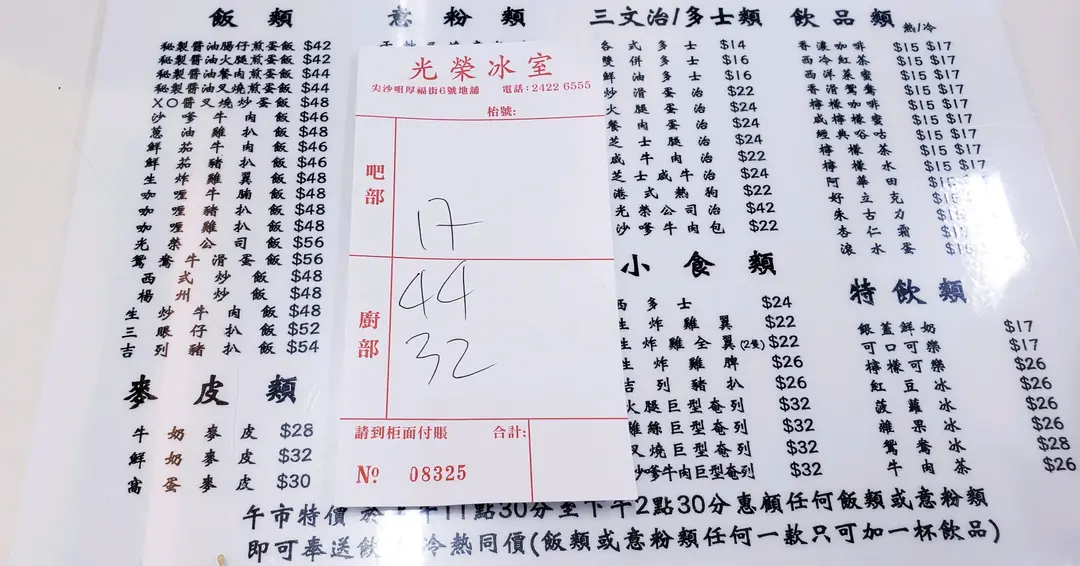 飯類
秘製醬油腸仔煎蛋飯 $42
秘製醬油火腿煎蛋飯 $42
秘製醬油餐肉煎蛋飯 $44
秘製醬油叉燒煎蛋飯 $44
XO醬叉燒炒蛋飯 $48
沙嗲牛肉飯 $46
蔥油雞扒飯 $48
鮮茄牛肉飯 $46
鮮茄豬扒飯 $46
生炸雞翼飯 $48
咖喱牛腩飯 $48
咖喱豬扒飯 $48
咖喱雞扒飯 $48
光榮公司飯 $56
鴛鴦牛滑蛋飯 $56
西式炒飯 $48
楊州炒飯 $48
生炒牛肉飯 $48
三眼仔扒飯 $52
吉列豬扒飯 $54
麥皮類
牛奶麥皮 $28
鮮奶麥皮 $32
窩蛋麥皮 $30
意粉類
光榮冰室
尖沙咀厚福街6號地舖 電話:2422 6555
枱號:
吧部
17
廚部
44
32
請到柜面付賬 合計:
No 08325
三文治/多士類
各式多士 $14
雙併多士 $16
鮮油多士 $16
炒滑蛋治 $22
火腿蛋治 $24
餐肉蛋治 $24
芝士腿治 $24
咸牛肉治 $22
芝士咸牛治 $24
港式熱狗 $22
光榮公司治 $42
沙嗲牛肉包 $22
小食類
西多士 $24
生炸雞翼 $22
生炸雞全翼(2隻) $22
生炸雞脾 $26
吉列豬扒 $26
火腿巨型奄列 $32
雞絲巨型奄列 $32
叉燒巨型奄列 $32
沙嗲牛肉巨型奄列 $32
飲品類 熱/冷
香濃咖啡 $15 $17
西冷紅茶 $15 $17
西洋菜蜜 $15 $17
香滑鴛鴦 $15 $17
檸檬咖啡 $15 $17
咸檸檬蜜 $15 $17
經典谷咕 $15 $17
檸檬茶 $15 $17
檸檬水 $15 $17
阿華田
好立克
朱古力
杏仁霜
滾水蛋
特飲類
銀蓋鮮奶 $17
可口可樂 $17
檸檬可樂 $26
紅豆冰 $26
菠蘿冰 $26
雜果冰 $26
鴛鴦冰 $28
牛肉茶 $26
午市特價 於上午11點30分至下午2點30分惠顧任何飯類或意粉類
即可奉送飲 冷熱同價(飯類或意粉類任何一款只可加一杯飲品)